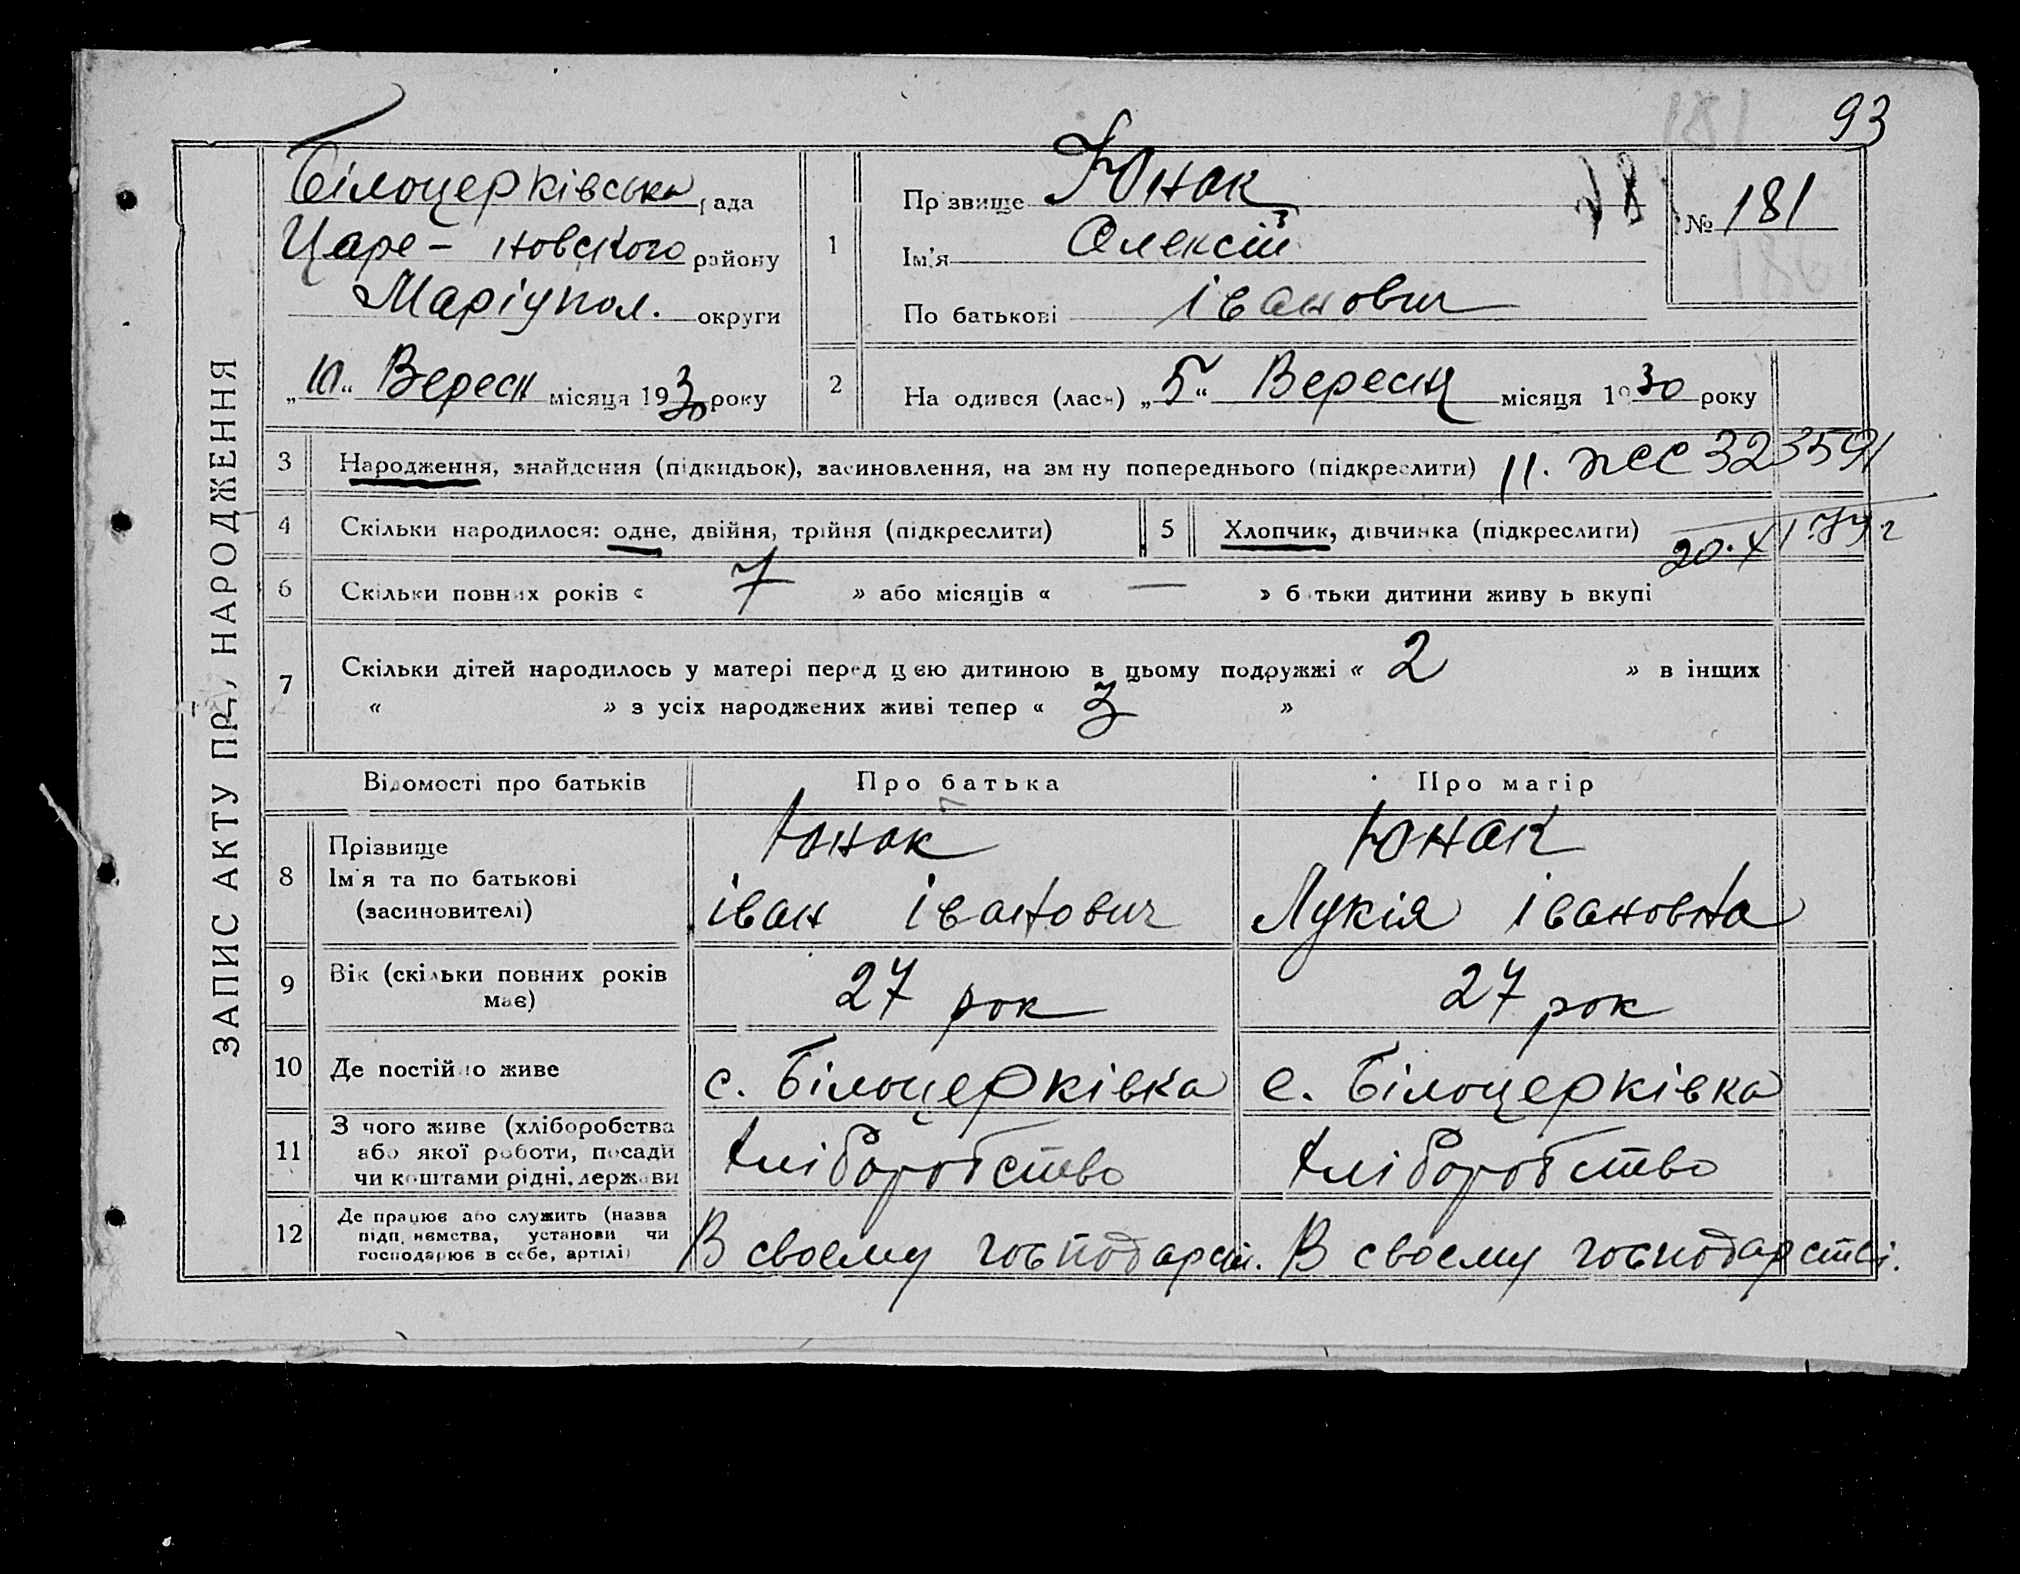 93
ЗАПИС АКТУ ПРО НАРОДЖЕННЯ
Білоцерківська рада
Царе-новского району
Маріупол. округи
„10“ Вересн місяця 1930 року
1
Прізвище Юнак
Ім'я Олексій
По батькові Іванович
№ 181
2
На одився (лася) „5“ Вересня місяця 1930 року
3 Народження, знайдення (підкидьок), засиновлення, на зміну попереднього (підкреслити) 11. ЖС 323591
4 Скільки народилося: одне, двійня, трійня (підкреслити) 5 Хлопчик, дівчинка (підкреслити)
20.XI.79 г
6 Скільки повних років « 7 » або місяців « — » батьки дитини живуть вкупі
7 Скільки дітей народилось у матері перед цією дитиною в цьому подружжі « 2 » в інших
« » з усіх народжених живі тепер « 3 »
Відомості про батьків Про батька Про матір
8 Прізвище Юнак Юнак
Ім'я та по батькові Іван Іванович Лукія Івановна
(засиновителі)
9 Вік (скільки повних років має) 27 рок 27 рок
10 Де постійно живе с. Білоцерківка с. Білоцерківка
11 З чого живе (хліборобства
або якої роботи, посади
чи коштами рідні, держави
Хліборобство Хліборобство
12 Де працює або служить (назва
підприємства, установи чи
господарює в себе, артілі)
В своєму господарст. В своєму господарстві.